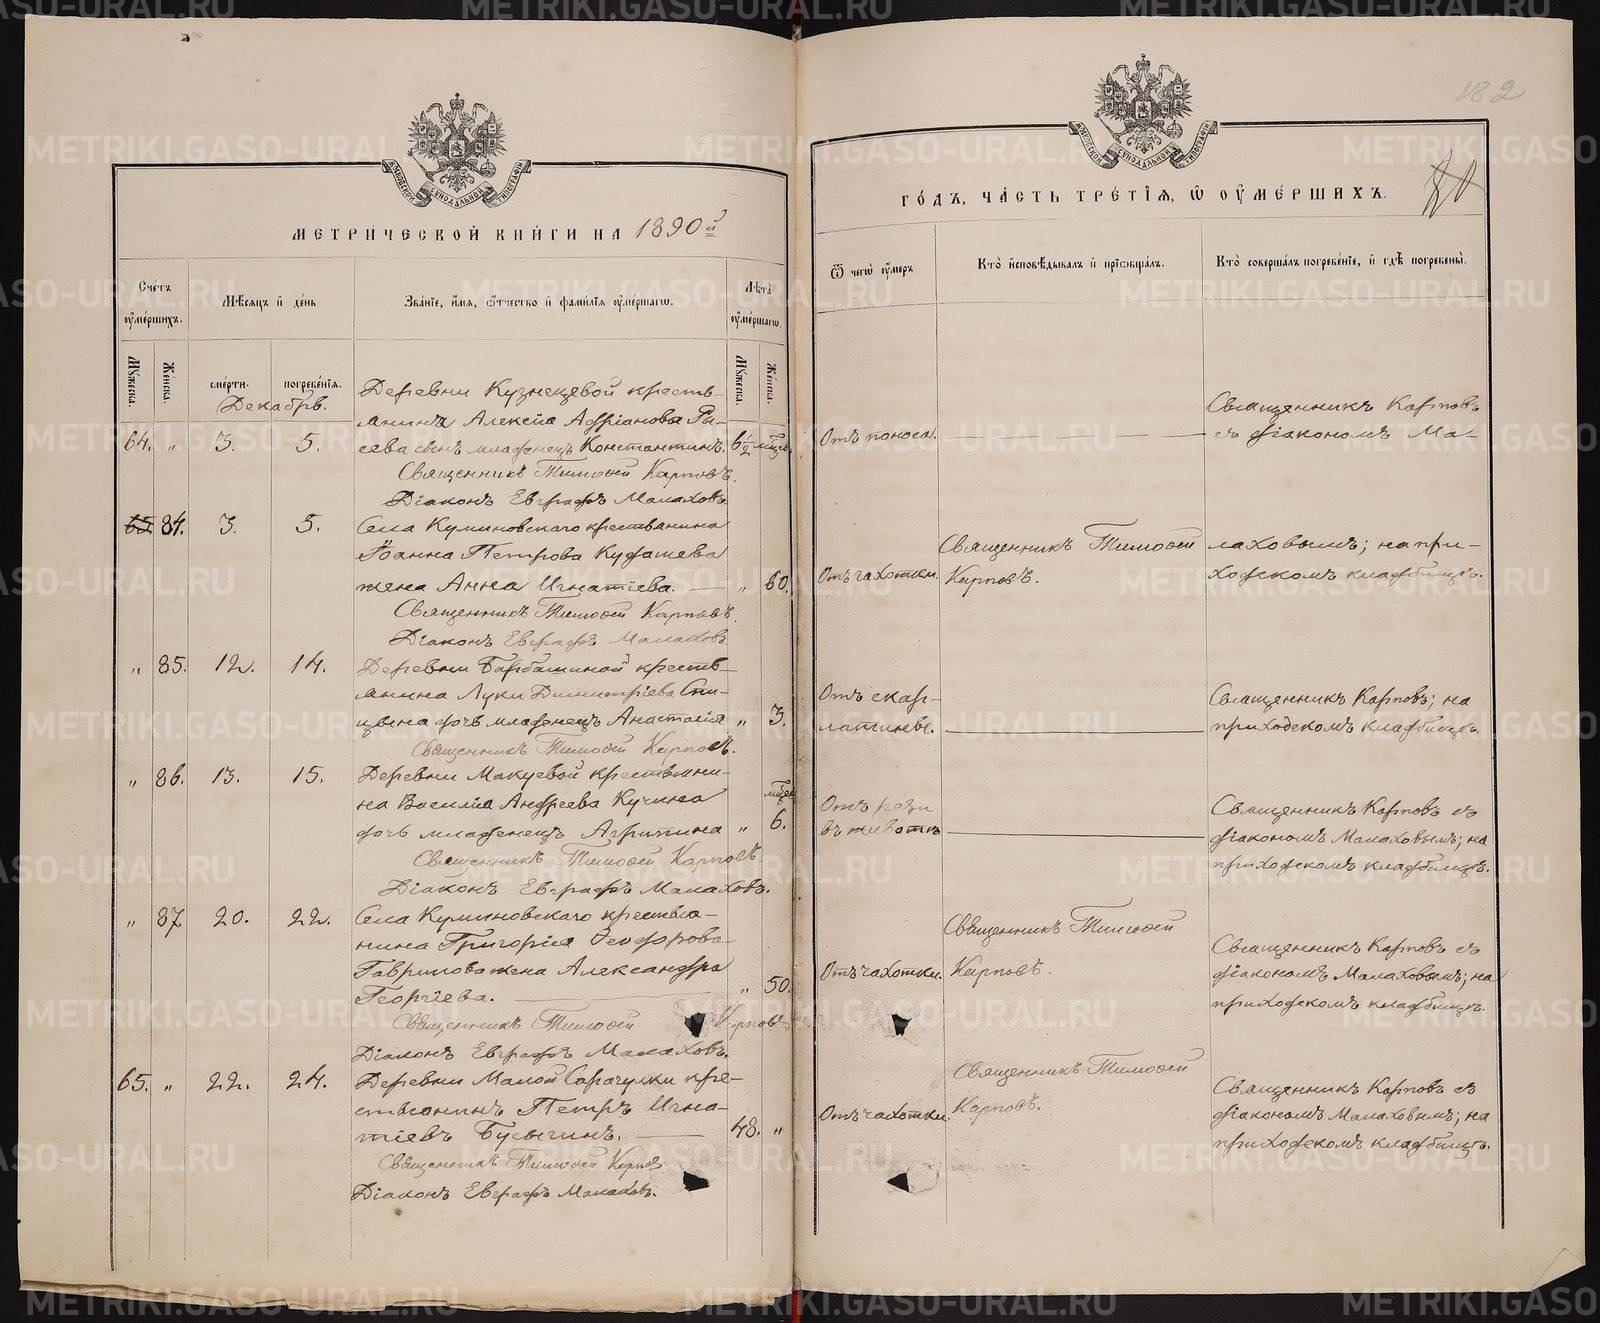 182
80
МЕТРИЧЕСКОЙ КНИГИ НА 1890й
ГОДЪ, ЧАСТЬ ТРЕТІЯ, Ѡ ОУМЕРШИХЪ.
Счетъ оумершихъ.
Мѣсяцъ и день
Званіе, имя, отчество и фамилія оумершагѡ.
Лѣта оумершагѡ.
Ѿ чегѡ оумеръ
Кто исповѣдывалъ и пріобщалъ.
Кто совершалъ погребеніе, и гдѣ погребены.
Мужеска.
Женска.
смерти.
погребенія.
Мужеска.
Женска.
Декабрь.
Деревни Кузнецевой кресть-
янина Алексѣя Адріанова Ра-
64. „ 3. 5. сева сынъ младенецъ Константинъ. 6½ мѣсяц.
Священникъ Тимоѳей Карповъ.
Діаконъ Евграфъ Малаховъ
65 84. 3. 5. Села Куминовскаго крестьянина
Іоанна Петрова Кудашева
жена Анна Игнатіева. — „ 60.
Священникъ Тимоѳей Карповъ.
Діаконъ Евграфъ Малаховъ
„ 85. 12. 14. Деревни Барбашиной кресть-
янина Луки Димитріева Спи-
цына дочь младенецъ Анастасія „ 3.
Священникъ Тимоѳей Карповъ.
„ 86. 13. 15. Деревни Макуевой крестьяни-
на Василія Андреева Кучина
дочь младенецъ Агрипина „ 6. мѣсяц
Священникъ Тимоѳей Карповъ
Діаконъ Евграфъ Малаховъ.
„ 87. 20. 22. Села Куминовскаго крестья-
нина Григорія Ѳеодорова
Гаврилова жена Александра
Георгіева. — „ 50.
Священникъ Тимоѳей Карповъ
Діаконъ Евграфъ Малаховъ.
65. „ 22. 24. Деревни Малой Сарачулки кре-
стьянинъ Петръ Игна-
тіевъ Бусыгинъ. — 48. „
Священникъ Тимоѳей Карповъ
Діаконъ Евграфъ Малаховъ.
Отъ поноса. —
Священникъ Карповъ
съ діакономъ Ма-
Отъ чахотки.
Священникъ Тимоѳей
Карповъ.
лаховымъ; на при-
ходскомъ кладбищѣ.
Отъ скар-
латины. —
Священникъ Карповъ; на
приходскомъ кладбищѣ.
Отъ рези
въ животѣ —
Священникъ Карповъ съ
діакономъ Малаховымъ; на
приходскомъ кладбищѣ.
Отъ чахотки.
Священникъ Тимоѳей
Карповъ.
Священникъ Карповъ съ
діакономъ Малаховымъ; на
приходскомъ кладбищѣ.
Отъ чахотки.
Священникъ Тимоѳей
Карповъ.
Священникъ Карповъ съ
діакономъ Малаховымъ; на
приходскомъ кладбищѣ.
METRIKI.GASO-URAL.RU